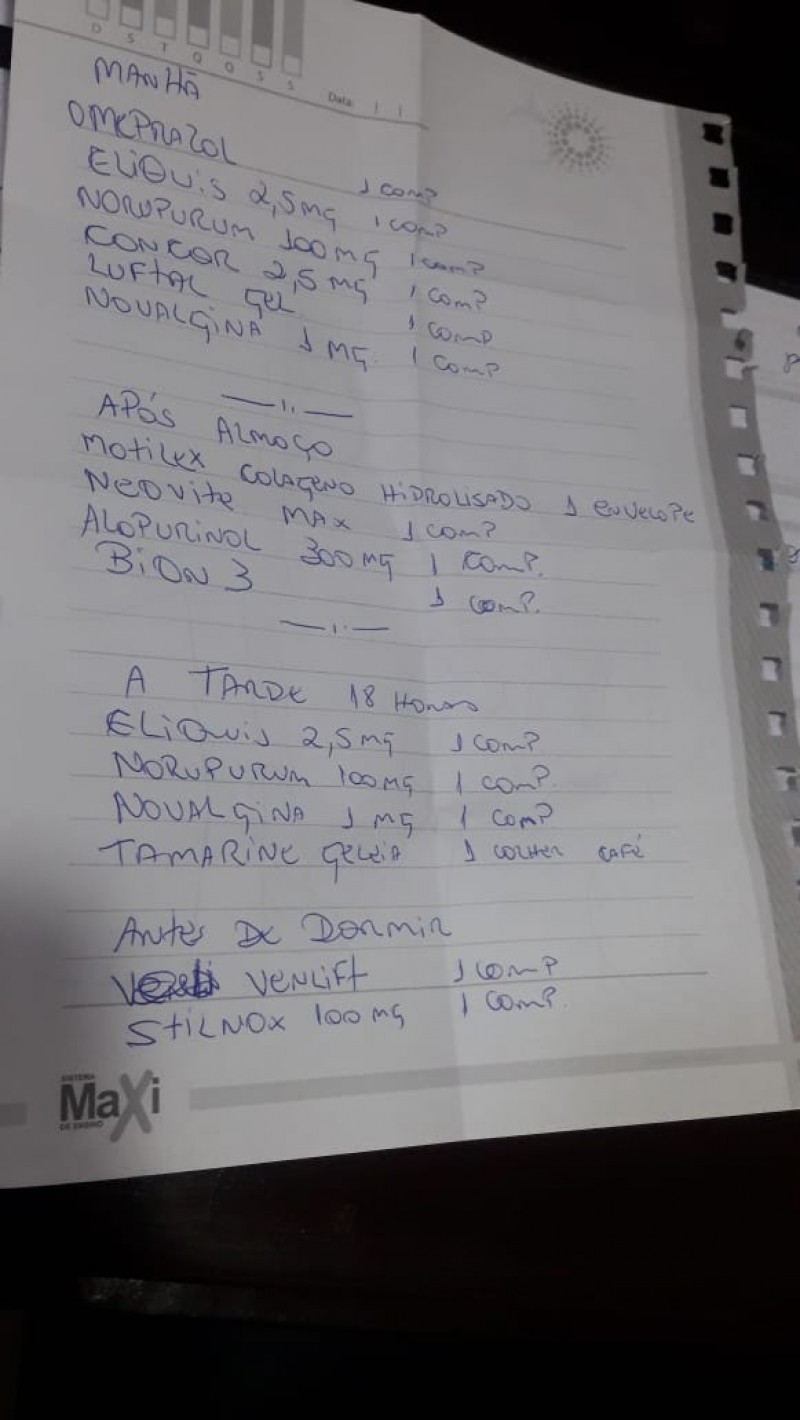 D S T Q Q S S
Data: | |
MANHÃ
OMEPRAZOL 1 COMP
ELIQUIS 2,5MG 1 COMP
NORUPURUM 100MG 1 COMP
CONCOR 2,5MG 1 COMP
LUFTAL GEL 1 COMP
NOVALGINA 1 MG. 1 COMP
APÓS ALMOÇO
MOTILEX COLAGENO HIDROLISADO 1 ENVELOPE
NEOVITE MAX 1 COMP
ALOPURINOL 300MG 1 COMP.
BION 3 1 COMP.
A TARDE 18 HORAS
ELIQUIS 2,5MG 1 COMP
NORUPURUM 100MG 1 COMP.
NOVALGINA 1 MG 1 COMP
TAMARINE GELEIA 1 COLHER CAFÉ
ANTES DE DORMIR
VENLIFT 1 COMP
STILNOX 100MG 1 COMP.
SISTEMA
MaXi
DE ENSINO